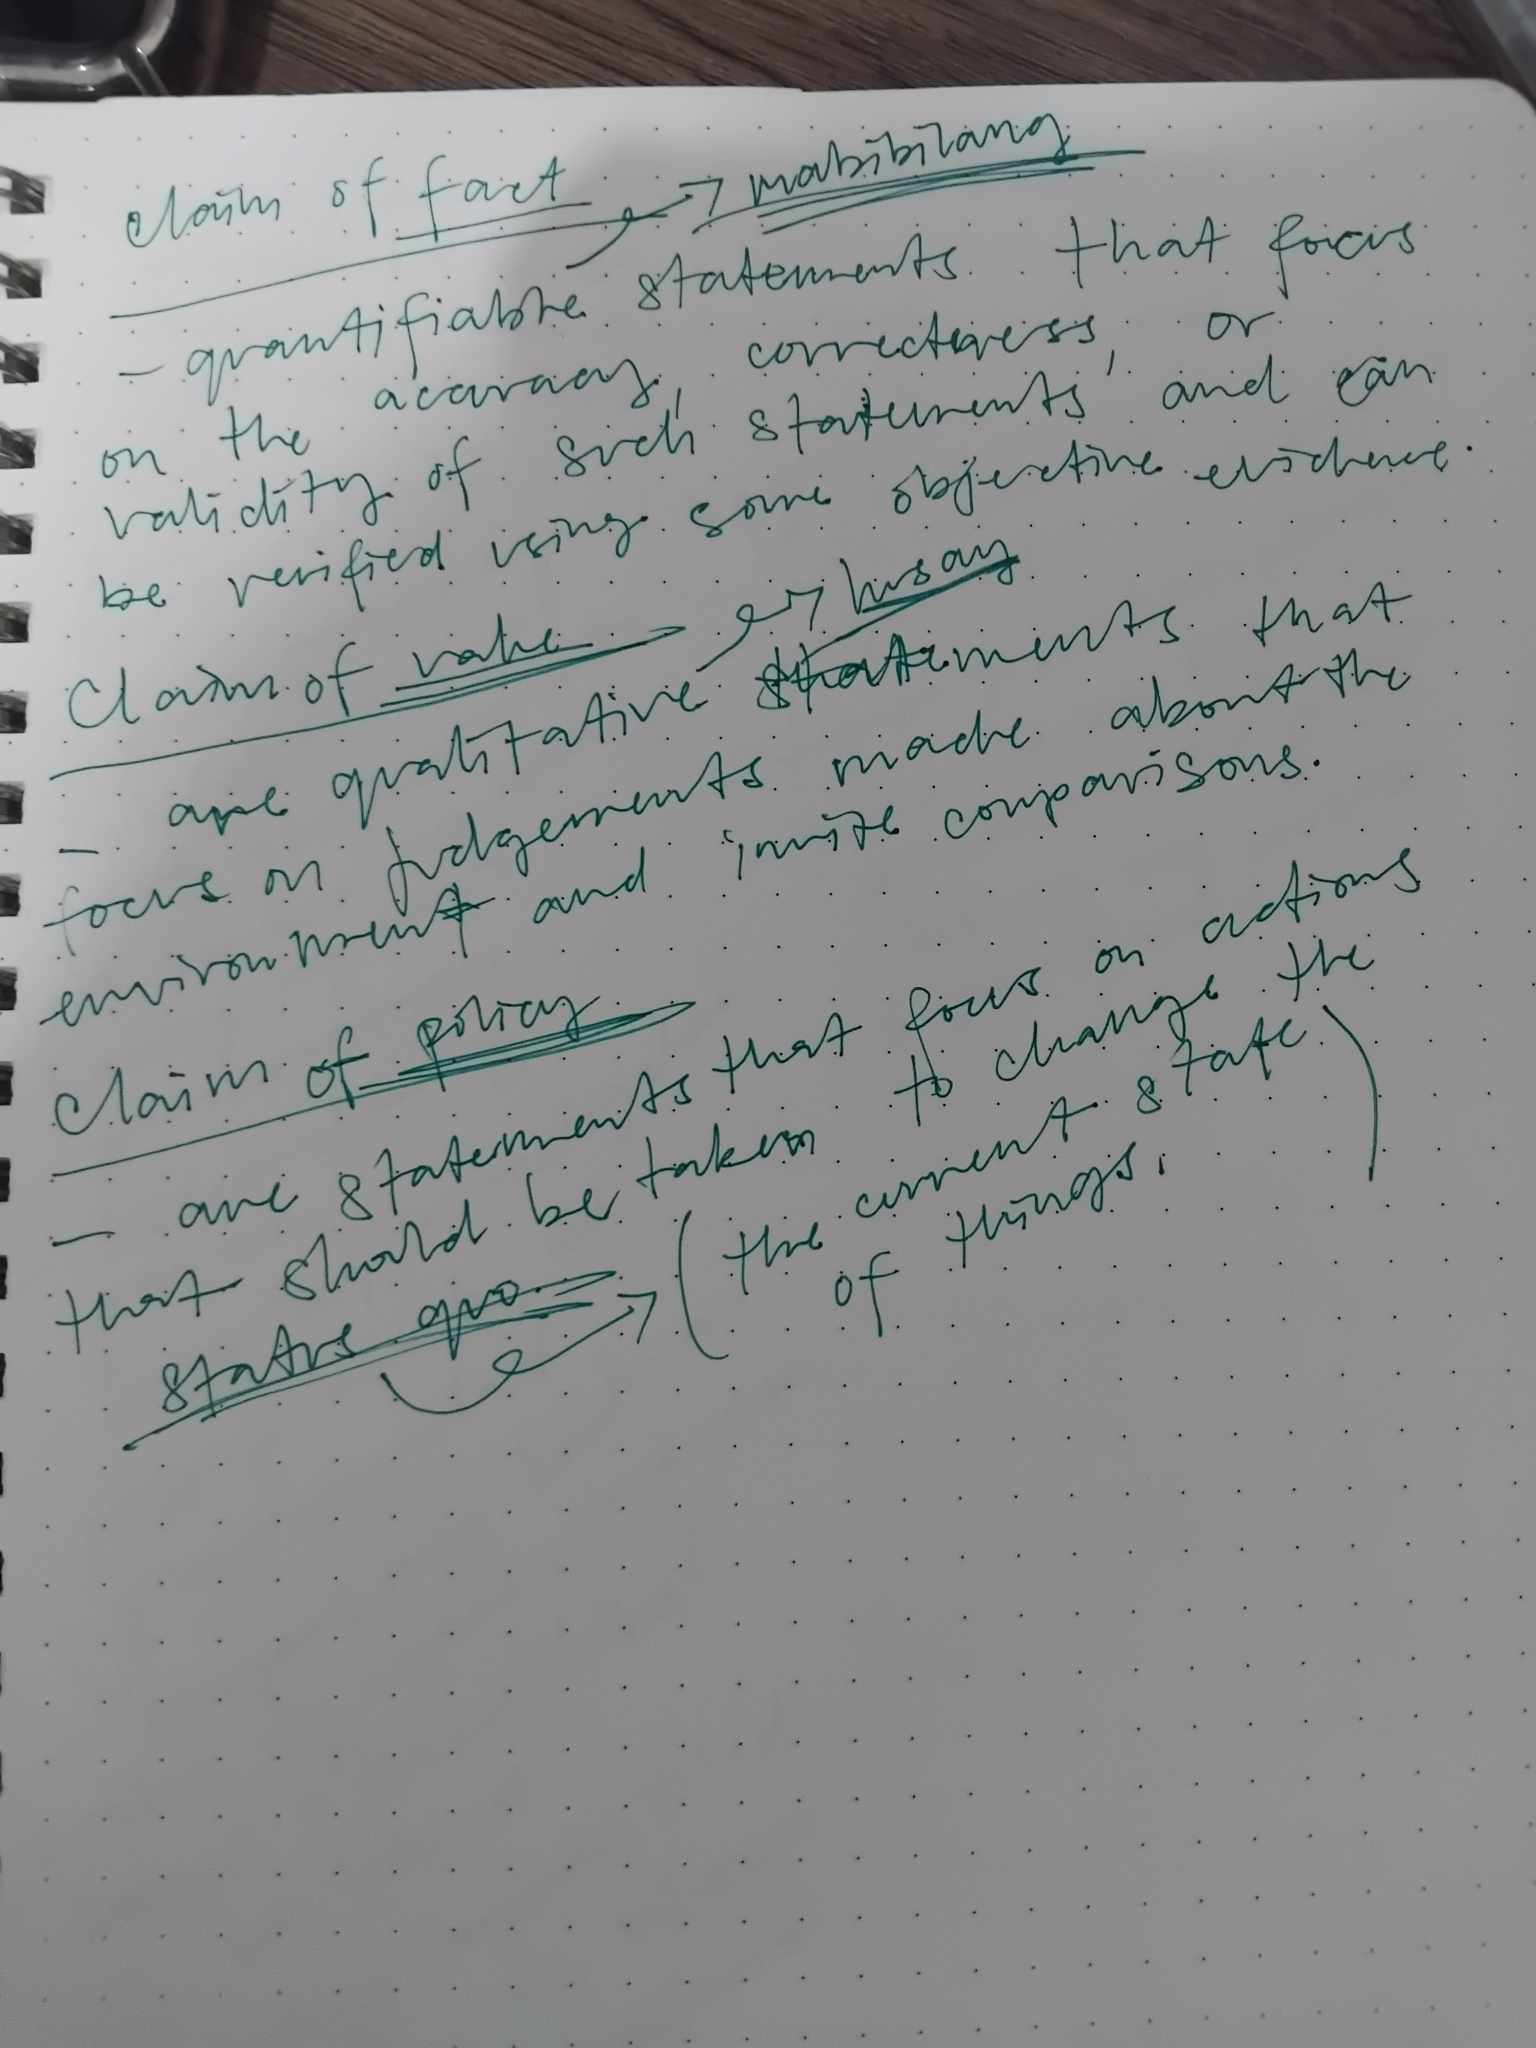 claim of fact → mabibilang
- quantifiable statements that focus
on the accuracy, correctness, or
validity of such statements and can
be verified using some objective evidence.
Claim of value → husay
- are qualitative statements that
focus on judgements made about the
environment and invite comparisons.
Claim of policy
- are statements that focus on actions
that should be taken to change the
status quo → (the current state
of things.)